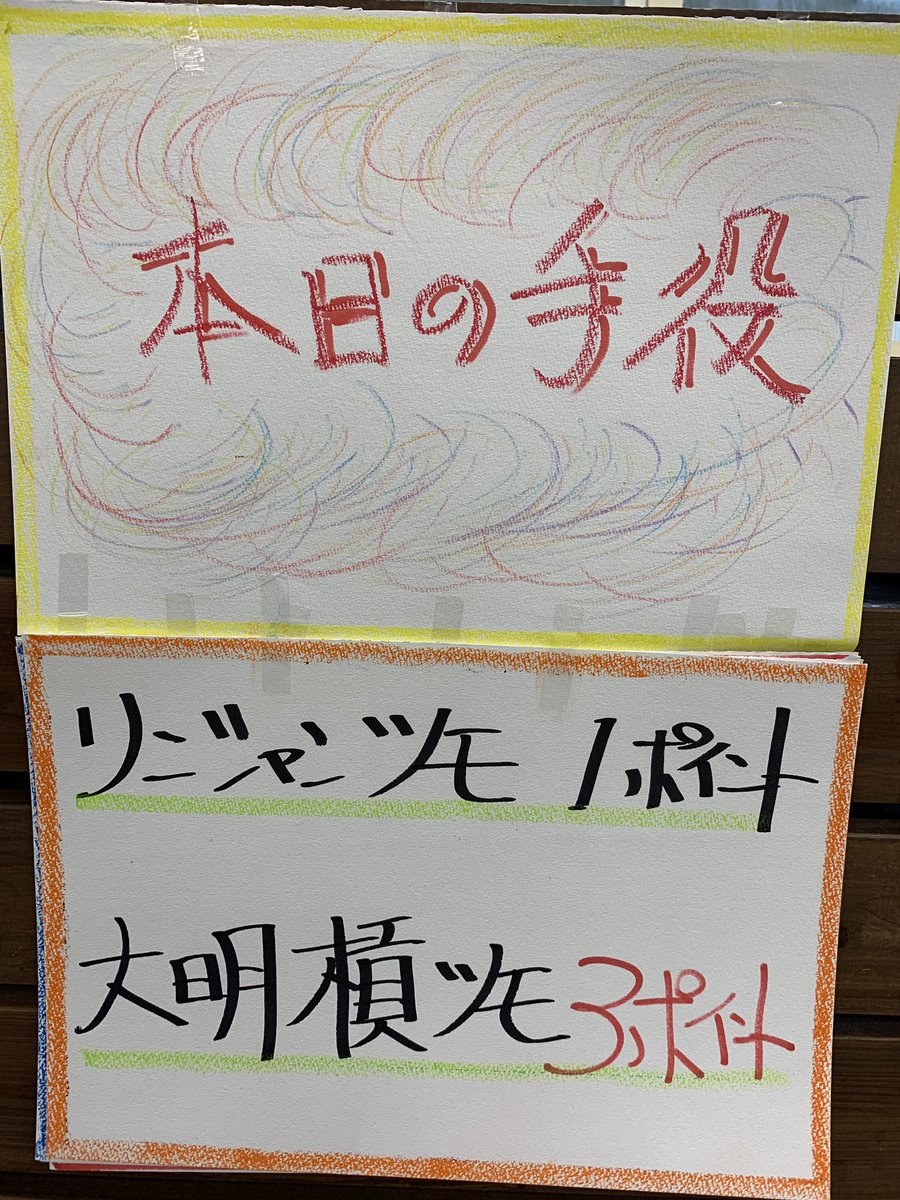 本日の手役
リンジャンツモ 1ポイント
大明槓ツモ 3ポイント